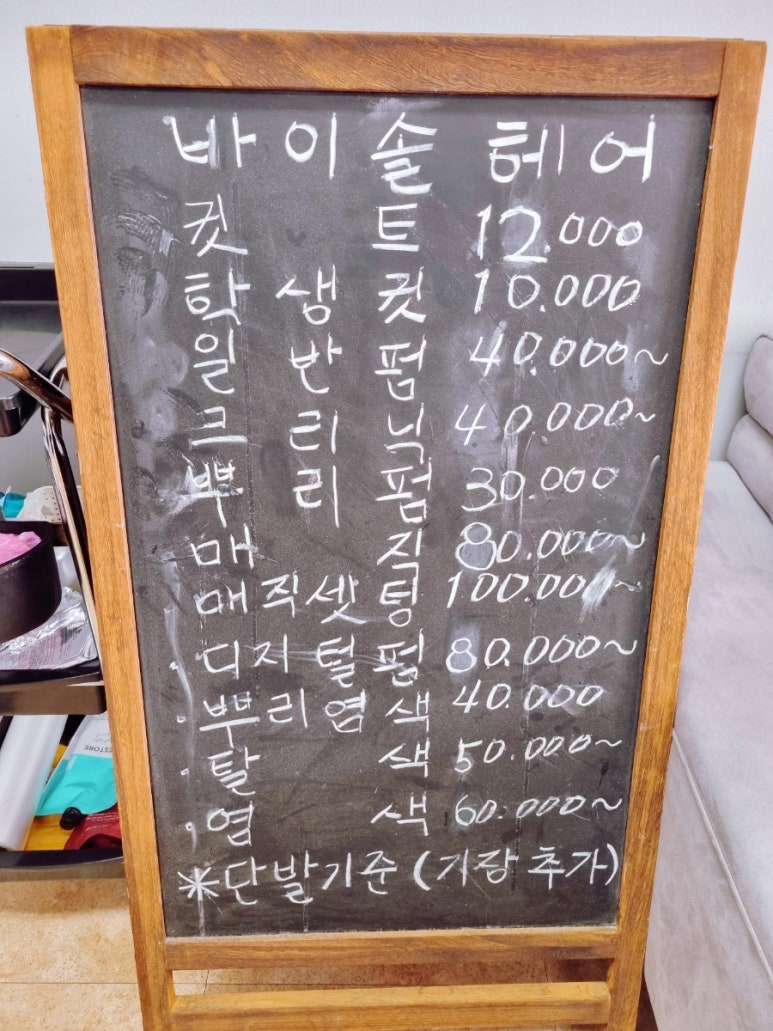 바이솔 헤어
컷트 12.000
학생컷 10.000
일반펌 40.000~
크리닉 40.000~
뿌리펌 30.000
매직 80.000~
매직셋팅 100.000~
디지털펌 80.000~
뿌리염색 40.000
탈색 50.000~
염색 60.000~
※단발기준(기장추가)